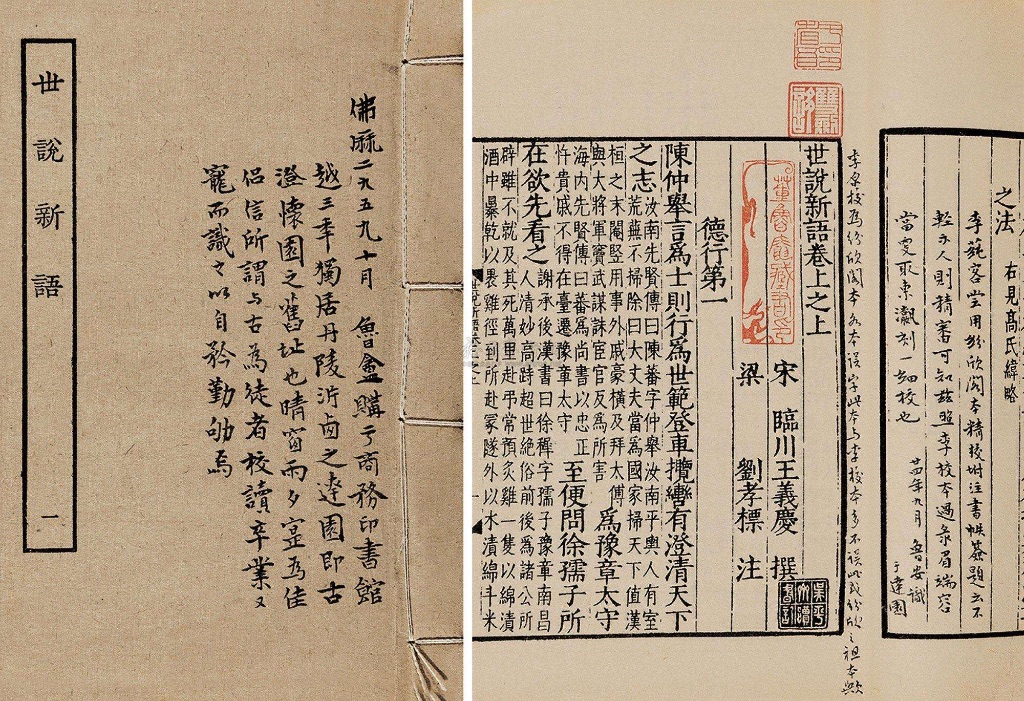 世說新語
一
佛曆二九五九十月 魯盦購于商務印書館
越三年獨居丹陵沜卤之達園即古
澄懷園之舊址也晴窗雨夕寔為佳
侶信所謂與古為徒者校讀卒業又
寵而識之以自矜勤劬焉
之法 右見高氏緯略
李蒓客嘗用紛欣閣本精校坿注書帙葊題云不
輕示人則精審可知茲照李校本過录眉端容
當更取東瀛刻一細校也
廿四年九月 魯安識
于達園
李氏校為紛欣閣本 然本誤字此本與李校本多不誤此或紛欣之祖本歟
世說新語卷上之上
董魯盦藏書印
宋 臨川王義慶 撰
梁 劉孝標 注
德行第一
陳仲舉言為士則行為世範登車攬轡有澄清天下
之志汝南先賢傳曰陳蕃字仲舉汝南平輿人有室
荒蕪不掃除曰大丈夫當為國家掃天下值漢
桓之末閹豎用事外戚豪橫及拜太傅
與大將軍竇武謀誅宦官反為所害為豫章太守
海內先賢傳曰蕃為尚書以忠正
忤貴戚不得在臺遷豫章太守至便問徐孺子所
在欲先看之謝承後漢書曰徐穉字孺子豫章南昌
人清妙高跱超世絕俗前後為諸公所
辟雖不就及其死萬里赴弔常預炙雞一隻以綿漬
酒中暴乾以裹雞徑到所赴冢隧外以水漬綿斗米